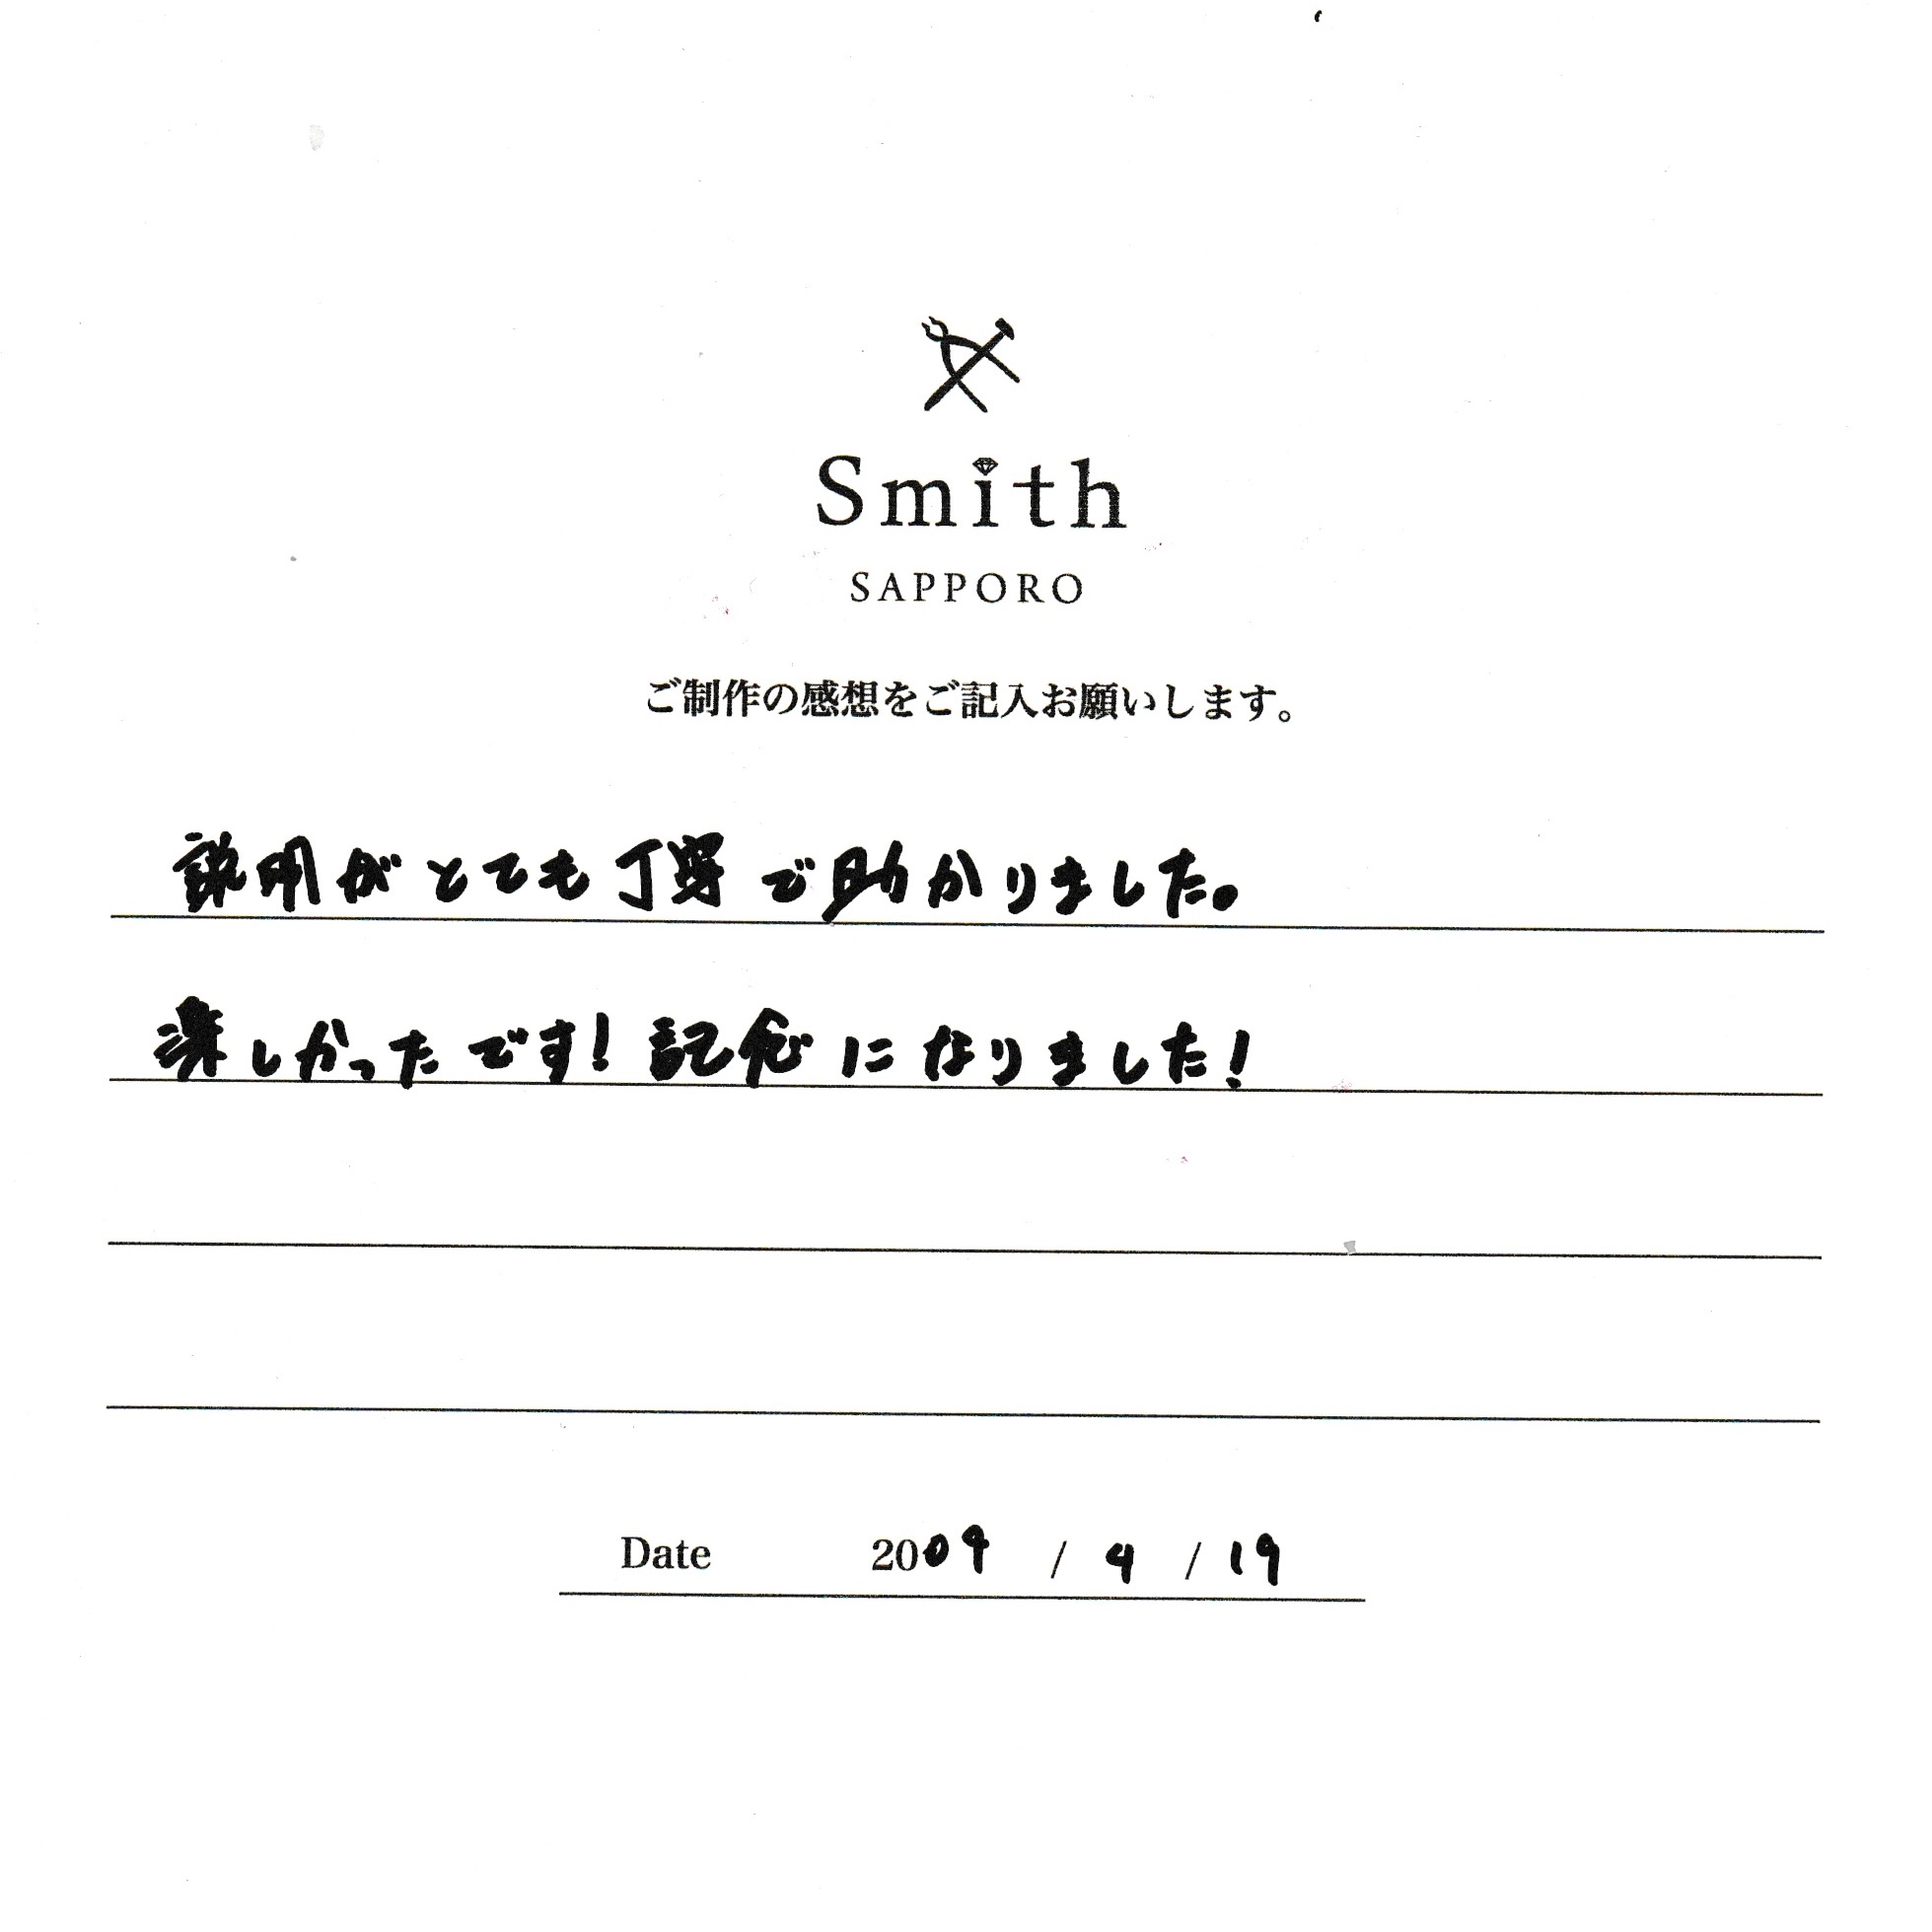 Smith
SAPPORO
ご制作の感想をご記入お願いします。
説明がとても丁寧で助かりました。
楽しかったです!記念になりました!
Date 2009 / 4 / 19